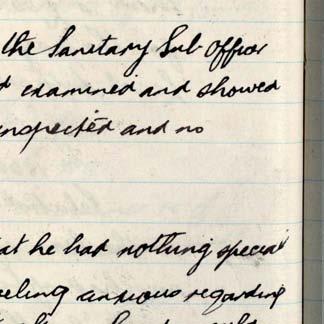 the Sanitary Sub Officer
examined and showed
inspected and no
at he had nothing special
eeling anxious regarding